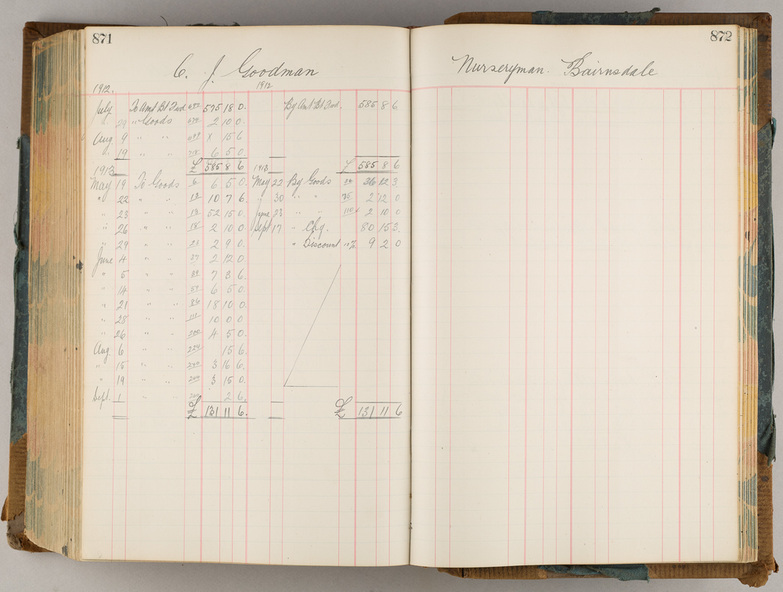 871
C. J. Goodman
1912. 1912
July To Amt Bt Fwd. 575 18 0. By Amt Bt Fwd. 585 8 6
" Goods 2 10 0.
Aug 9 " " 15 6
" 19 " " 6 5 0.
£ 585 8 6 £ 585 8 6
1913 1913
May 19 To Goods 6 5 0. May 22 By Goods 3
" 22 " " 10 7 6. " 30 " " 2 12 0
" 23 " " 52 15 0. June 23 " " 2 10 0
" 26 " " 2 10 0 Sept 17 " Chq. 80 15 3.
" 29 " " 2 9 0. " Discount 9 2 0
June 4 " " 2 12 0.
" 5 " " 7 3 6.
" 14 " " 6 5 0
" 21 " " 18 10 0.
" 25 " " 10 0 0
" 26 " " 4 5 0.
Aug 6 " " 15 6.
" 15 " " 3 16 6.
" 19 " " 3 15 0.
Sept. 1 " " 2 6.
£ 131 11 6. £ 131 11 6
872
Nurseryman. Bairnsdale